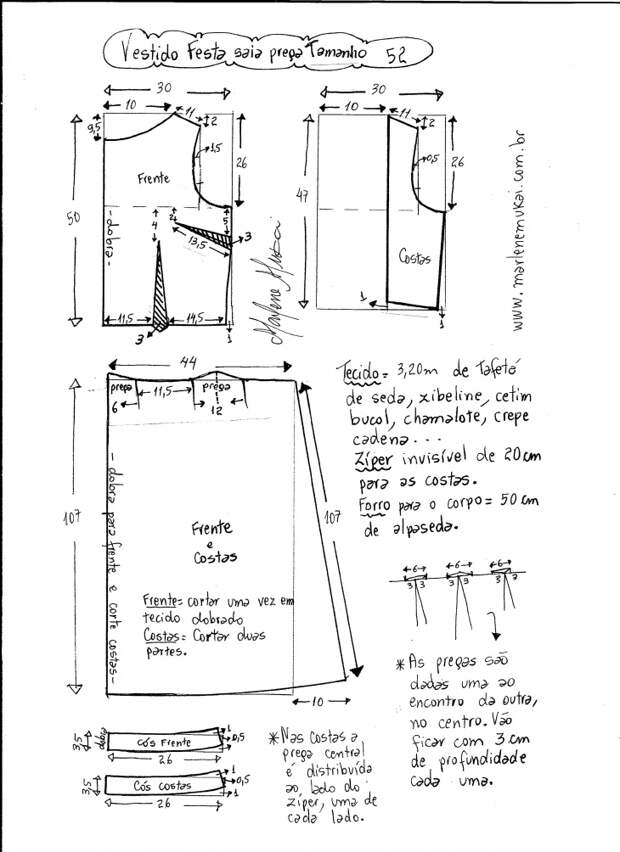 Vestido Festa saia prega Tamanho 52
30
10
11
2
9,5
1,5
26
Frente
50
- dobra -
4
2
5
13,5
3
11,5
14,5
3
1
Marlene Mukai
30
10
11
2
0,5
26
47
Costas
1
1
www.marlenemukai.com.br
44
prega
11,5
prega
6
12
107
- dobra para frente e corte costas -
Frente
e
Costas
107
Frente= cortar uma vez em
tecido dobrado
Costas= Cortar duas
partes.
10
Tecido= 3,20m de Tafetá
de seda, xibeline, cetim
bucol, chamalote, crepe
cadena...
Zíper invisível de 20cm
para as costas.
Forro para o corpo= 50 cm
de alpaseda.
6 6 6
3 3 3 3 3
*As pregas são
dadas uma ao
encontro da outra,
no centro. Vão
ficar com 3 cm
de profundidade
cada uma.
3,5
dobra
Cós Frente
1
0,5
1
26
3,5
Cós costas
1
0,5
1
26
*Nas Costas a
prega central
é distribuída
ao lado do
zíper, uma de
cada lado.